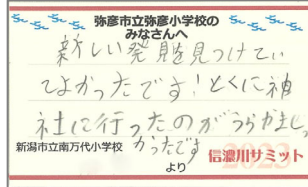 弥彦市立弥彦小学校の
みなさんへ
新しい発見を見つけてい
てよかったです!とくに神
社に行ったのがうらやまし
かったです
新潟市立南万代小学校
より
信濃川サミット
2023